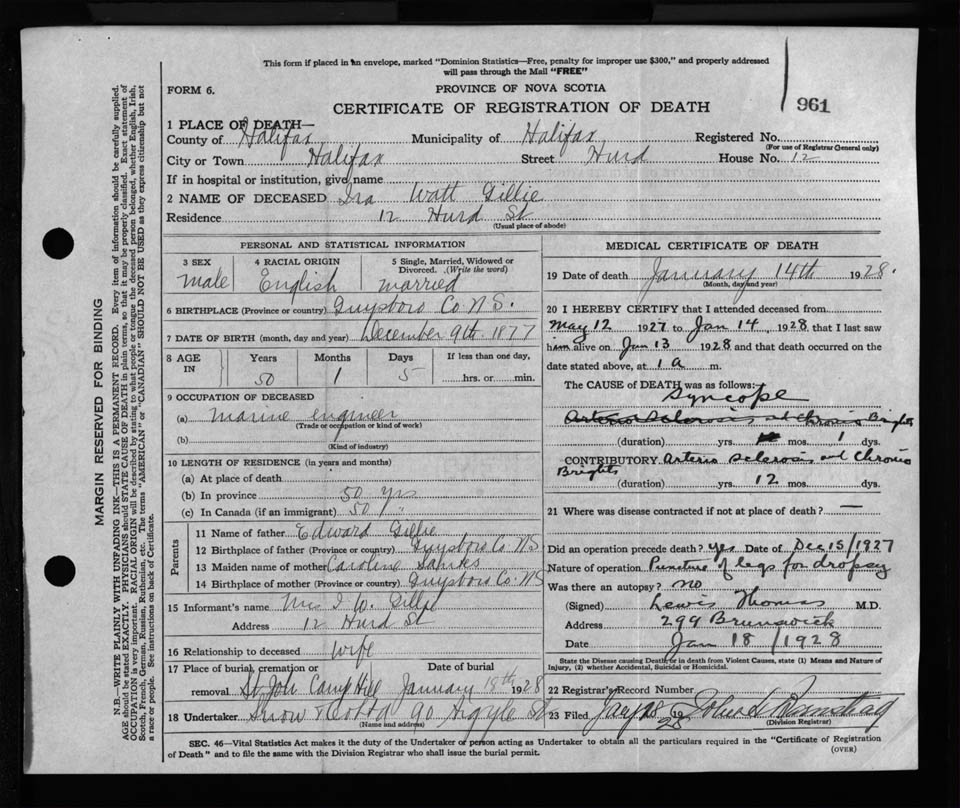 This form if placed in an envelope, marked "Dominion Statistics—Free, penalty for improper use $300," and properly addressed
will pass through the Mail "FREE"
FORM 6.
PROVINCE OF NOVA SCOTIA
CERTIFICATE OF REGISTRATION OF DEATH
961
1 PLACE OF DEATH—
County of Halifax Municipality of Halifax Registered No.
(For use of Registrar General only)
City or Town Halifax Street Hurd House No. 12
If in hospital or institution, give name
2 NAME OF DECEASED Ira Watt Gillie
Residence 12 Hurd St
(Usual place of abode)
PERSONAL AND STATISTICAL INFORMATION
3 SEX 4 RACIAL ORIGIN 5 Single, Married, Widowed or Divorced. (Write the word)
Male English Married
6 BIRTHPLACE (Province or country) Guysboro Co N.S.
7 DATE OF BIRTH (month, day and year) December 9th 1877
8 AGE IN Years Months Days If less than one day,
50 1 5 hrs. or min.
9 OCCUPATION OF DECEASED
(a) Marine engineer
(Trade or occupation or kind of work)
(b)
(Kind of industry)
10 LENGTH OF RESIDENCE (in years and months)
(a) At place of death
(b) In province 50 yrs
(c) In Canada (if an immigrant) 50
Parents
11 Name of father Edward Gillie
12 Birthplace of father (Province or country) Guysboro Co NS
13 Maiden name of mother Caroline
14 Birthplace of mother (Province or country) Guysboro Co. NS
15 Informant's name Mrs I. W. Gillie
Address 12 Hurd St
16 Relationship to deceased Wife
17 Place of burial, cremation or removal St Joh Camp Hill Date of burial January 18th 1928
18 Undertaker Snow & 90 Argyle St
(Name and address)
MEDICAL CERTIFICATE OF DEATH
19 Date of death January 14th 1928.
(Month, day and year)
20 I HEREBY CERTIFY that I attended deceased from
May 12 1927 to Jan 14, 1928 that I last saw
him alive on Jan 13 1928 and that death occurred on
date stated above, at 1 a m.
The CAUSE OF DEATH was as follows:
Syncope
Arterio Sclerosis and Chronic Brights
(duration) yrs. mos. 1 dys.
CONTRIBUTORY Arterio Sclerosis and Chronic
Brights
(duration) yrs. 12 mos. dys.
21 Where was disease contracted if not at place of death? —
Did an operation precede death? yes Date of Dec 15/1927
Nature of operation Puncture of legs for dropsy
Was there an autopsy? no
(Signed) Lewis Thomas M.D.
Address 299 Brunswick
Date Jan 18/1928
State the Disease causing Death, or in death from Violent Causes, state (1) Means and Nature of
Injury, (2) whether Accidental, Suicidal or Homicidal.
22 Registrar's Record Number
23 Filed 18 1928
(Division Registrar)
SEC. 46—Vital Statistics Act makes it the duty of the Undertaker or person acting as Undertaker to obtain all the particulars required in the "Certificate of Registration
of Death" and to file the same with the Division Registrar who shall issue the burial permit.
(OVER)
MARGIN RESERVED FOR BINDING
N.B.—WRITE PLAINLY WITH UNFADING INK—THIS IS A PERMANENT RECORD. Every item of information should be carefully supplied.
AGE should be stated EXACTLY. PHYSICIANS should STATE CAUSE OF DEATH in plain terms, so that it may be properly classified. Exact statement of
OCCUPATION is very important. RACIAL ORIGIN will be described by stating to what people or tongue the deceased person belonged, whether English, Irish,
Scotch, French, German, Russian, Ruthenian, etc. The terms "AMERICAN" or "CANADIAN" SHOULD NOT BE USED as they express citizenship but not
a race or people. See instructions on back of Certificate.